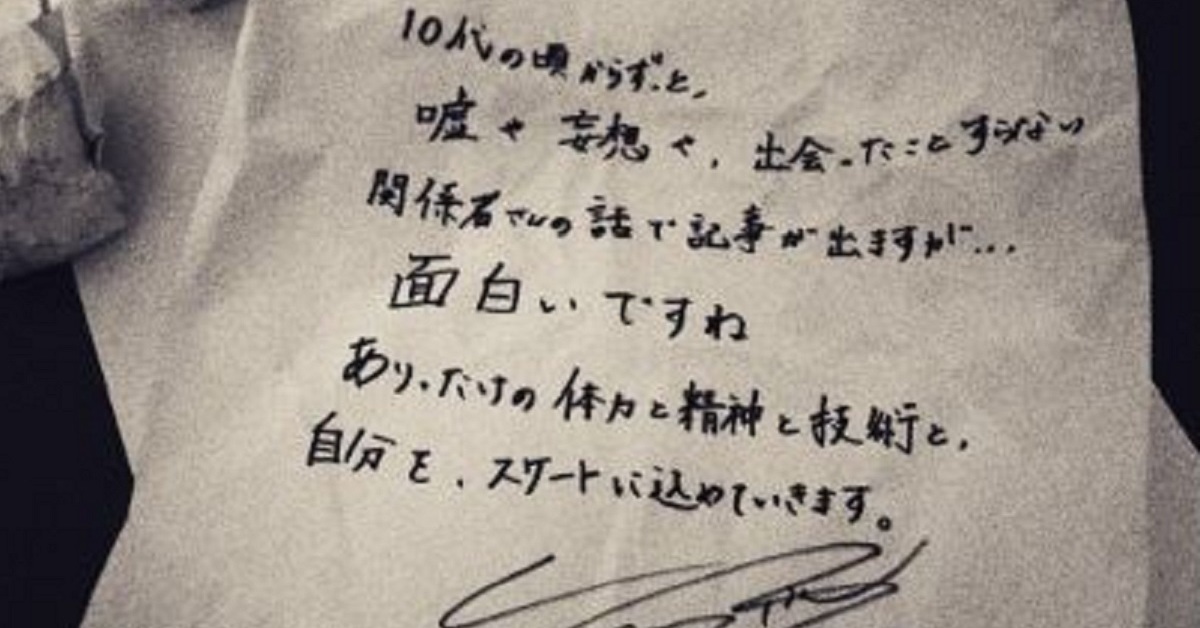 10代の頃からずっと、
嘘や妄想や、出会ったことすらない
関係者さんの話で記事が出ますが…
面白いですね
ありったけの体力と精神と技術と、
自分を、スケートに込めていきます。